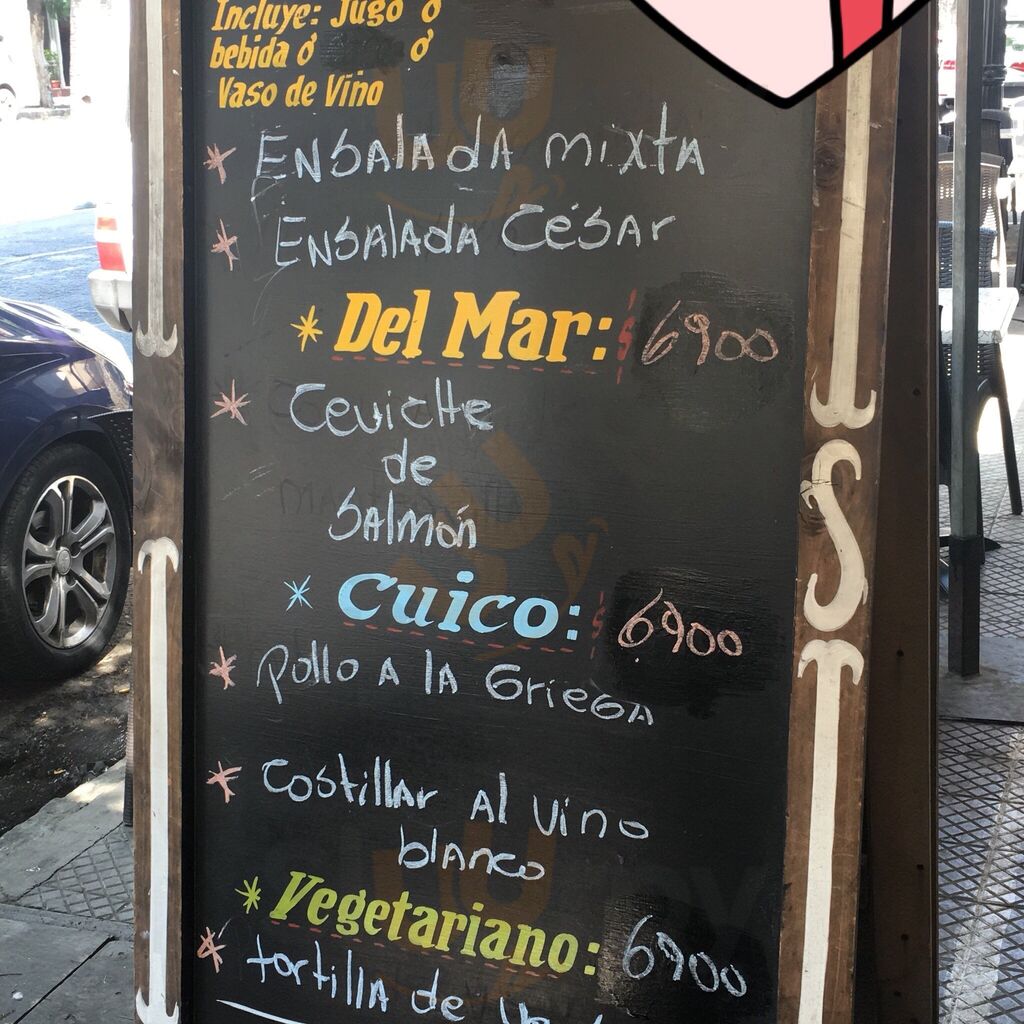 Incluye: Jugo ó
bebida ó ó
Vaso de Vino
* ENSALADA MIXTA
* ENSALADA CÉSAR
* Del Mar: $ 6900
* CEVICHE
de
SALMÓN
* Cuico: $ 6900
* Pollo A LA GRIEGA
* Costillar Al Vino
blanco
* Vegetariano: 6900
* tortilla de